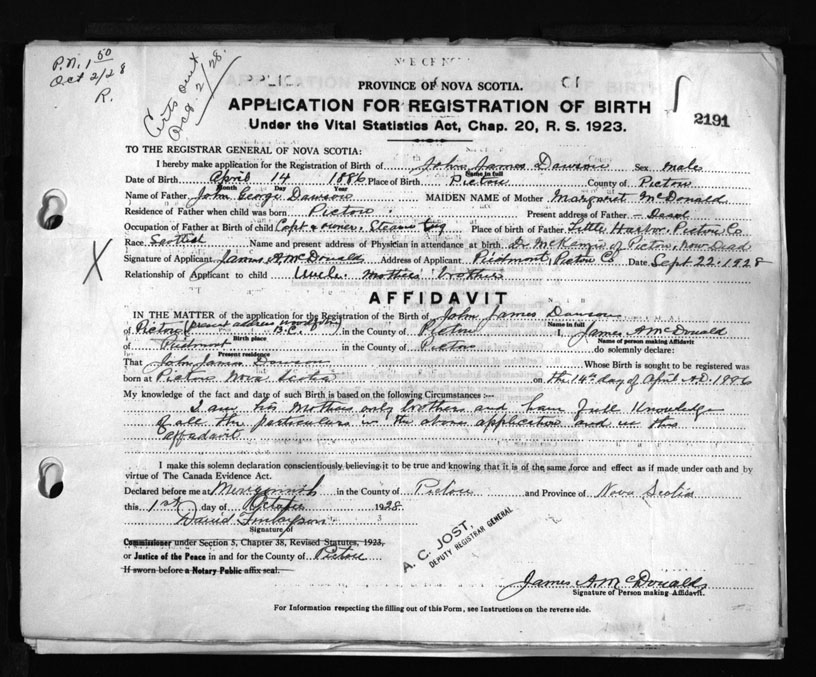 P.N. 1 50
Oct 2/28
R.
Certs out
Aug. 2/28.
PROVINCE OF NOVA SCOTIA.
APPLICATION FOR REGISTRATION OF BIRTH
Under the Vital Statistics Act, Chap. 20, R. S. 1923.
2191
TO THE REGISTRAR GENERAL OF NOVA SCOTIA:
I hereby make application for the Registration of Birth of John James Dawson Sex male
Name in full
Date of Birth April 14 1886 Place of Birth Pictou County of Pictou
Month Day Year
Name of Father John George Dawson MAIDEN NAME of Mother Margaret McDonald
Residence of Father when child was born Pictou. Present address of Father – Dead
Occupation of Father at Birth of child Capt & owner, Steam Tug Place of birth of Father Little Harbor, Pictou Co
Race Scottish Name and present address of Physician in attendance at birth Dr McKenzie of Pictou, Now Dead
X
Signature of Applicant James A. McDonald Address of Applicant Piedmont, Pictou Co Date Sept 22. 1928
Relationship of Applicant to child Uncle. Mothers brother
AFFIDAVIT
IN THE MATTER of the application for the Registration of the Birth of John James Dawson
Name in full
of Pictou (present address B.C. in the County of Pictou I, James A McDonald
Birth place Name of person making Affidavit
of Piedmont in the County of Pictou do solemnly declare:
Present residence
That John James Dawson Whose Birth is sought to be registered was
born at Pictou Nova Scotia on the 14th day of April A.D. 1886
My knowledge of the fact and date of such Birth is based on the following Circumstances :—
I am his Mothers only brother and have full knowledge
of all the particulars in the above application and in this
affidavit
I make this solemn declaration conscientiously believing it to be true and knowing that it is of the same force and effect as if made under oath and by
virtue of The Canada Evidence Act.
Declared before me at Merigomish in the County of Pictou and Province of Nova Scotia
this 1st day of October 1928
David Finlayson
Signature of
Commissioner under Section 5, Chapter 38, Revised Statutes, 1923,
or Justice of the Peace in and for the County of Pictou
If sworn before a Notary Public affix seal.
A. C. JOST,
DEPUTY REGISTRAR GENERAL
James A. McDonald
Signature of Person making Affidavit.
For Information respecting the filling out of this Form, see Instructions on the reverse side.